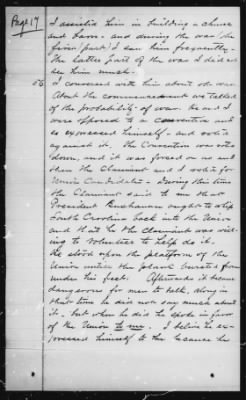 Page 17
I assisted him in building a house
and barn - and during the war (the
first part) I saw him frequently.
The latter part of the war I did not
see him much.
56 I conversed with him about the war.
About the commencement we talked
of the probability of war. He and I
were opposed to a convention and
so expressed himself - and voted
against it. The Convention was voted
down, and it was forced on us and
then the Claimant and I voted for
Union Candidates. During this time
the Claimant said to me that
President Buchanan ought to whip
South Carolina back into the Union
and that he the Claimant was will-
ing to volunteer to help do it.
He stood upon the platform of the
Union until the plank bursted from
under his feet. Afterwards it became
dangerous for men to talk, along in
that time he did not say much about
it - but when he did he spoke in favor
of the Union to me. I believe he ex-
pressed himself to me because he